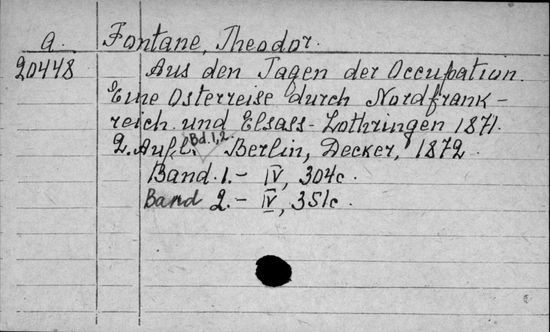 a. Fontane, Theodor.
20448 Aus den Tagen der Occupation.
Eine Osterreise durch Nordfrank-
reich und Elsass-Lothringen 1871.
Bd. 1,2.
2. Aufl. Berlin, Decker, 1872.
Band 1.- IV, 304c.
Band 2.- IV, 351c.